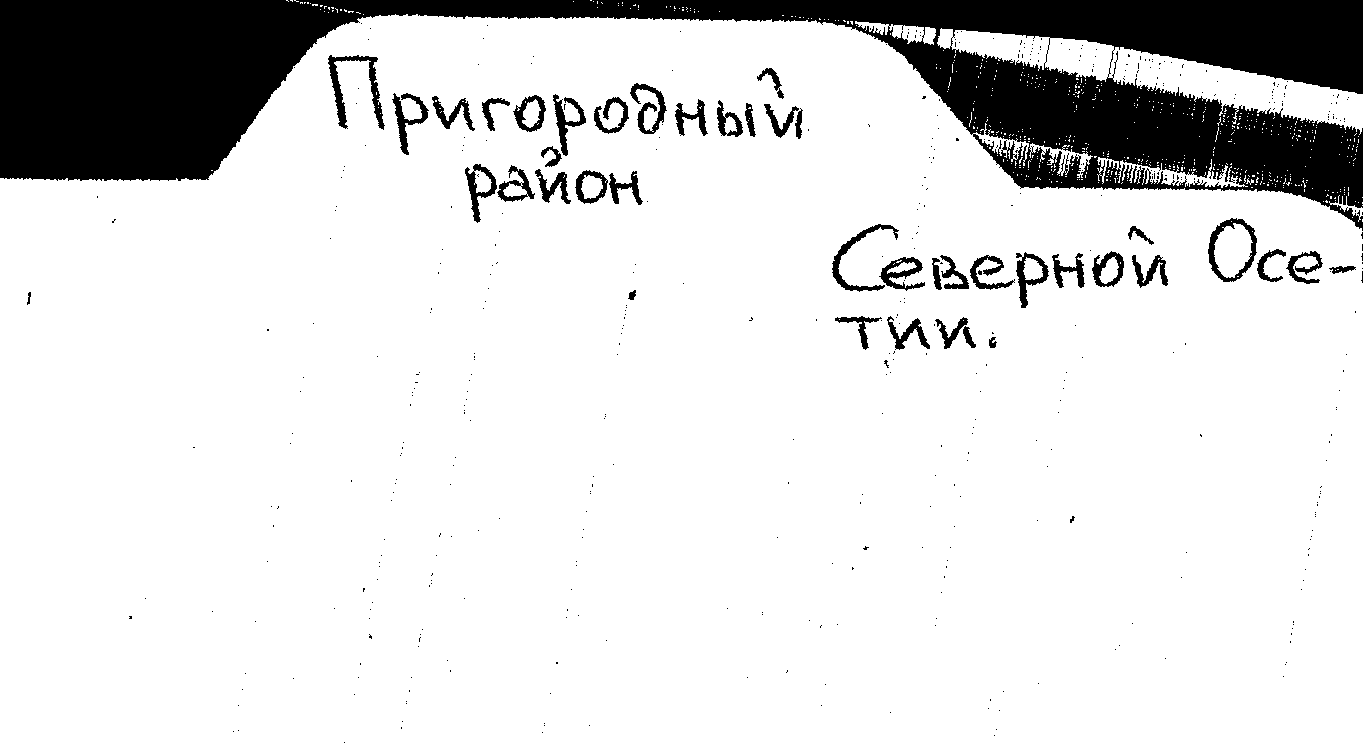 Пригородный
район
Северной Осе-
тии.